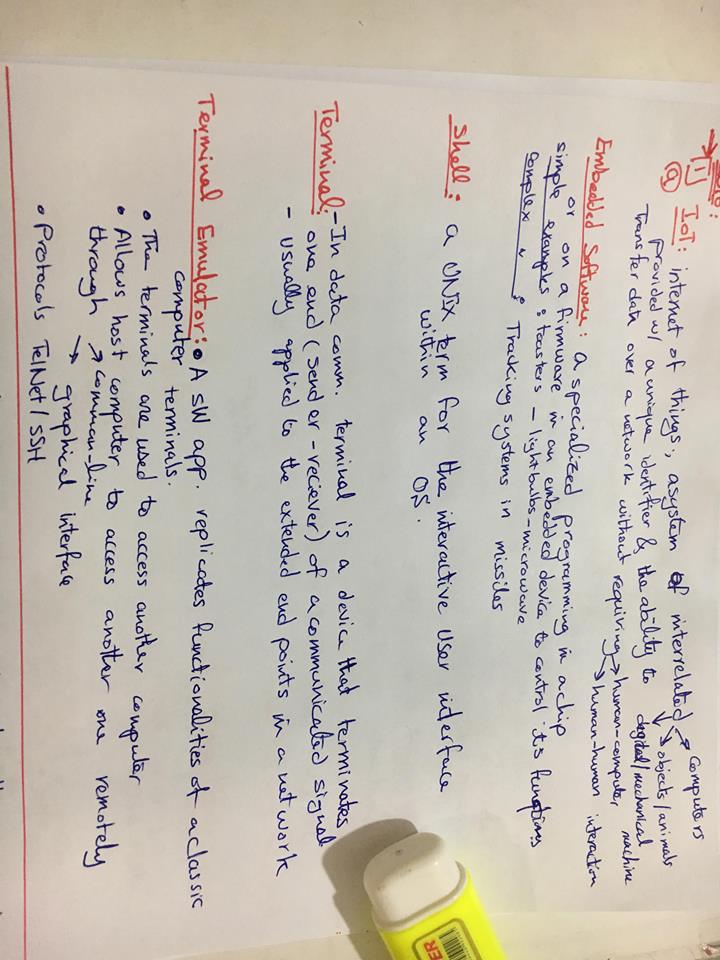 1
a IoT: internet of things., asystem of interrelated → computers
→ objects/animals
provided w/ a unique identifier & the ability to → degital/mechanical machine
Transfer data over a network without requiring → human-computer
→ human-human interaction
Embedded Software: a specialized programming in a chip
or on a firmware in an embedded device to control its functions
simple examples: toasters - lightbulbs - microwave
complex ~ : Tracking systems in missiles
Shell: a UNIX term for the interactive user interface
within an OS.
Terminal: - In data comm. terminal is a device that terminates
one end (sender - reciever) of a communicated signal
- usually applied to the extended end points in a network
Terminal Emulator: • A SW app. replicates functionalities of a classic
computer terminals.
• The terminals are used to access another computer
• Allows host computer to access another one remotely
through → comman-line
→ graphical interface
• Protocols TelNet / SSH